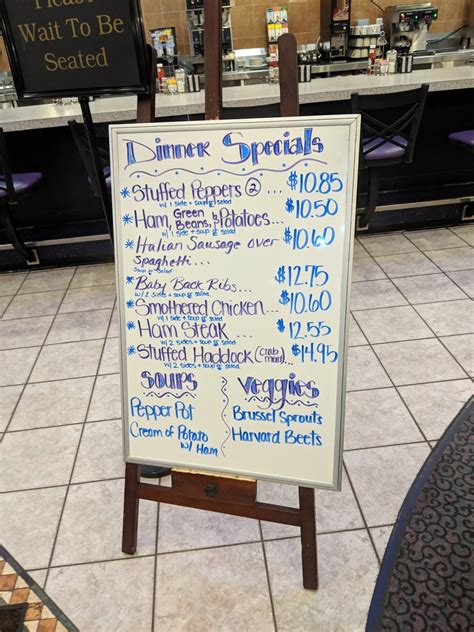 Please
Wait To Be
Seated
Dinner Specials
* Stuffed Peppers (2) ... $10.85
w/ 1 side + soup & salad
* Ham, Green Beans, & Potatoes... $10.50
w/ 1 side + soup & salad
* Italian Sausage over $10.60
spaghetti...
Soup & salad
* Baby Back Ribs... $12.75
w/ 2 sides + soup & salad
* Smothered Chicken... $10.60
w/ 1 side + soup & salad
* Ham Steak... $12.55
w/ 2 sides + soup & salad
* Stuffed Haddock (crab meat)... $14.95
w/ 2 sides + soup & salad
Soups
Pepper Pot
Cream of Potato
w/ Ham
Veggies
Brussel Sprouts
Harvard Beets